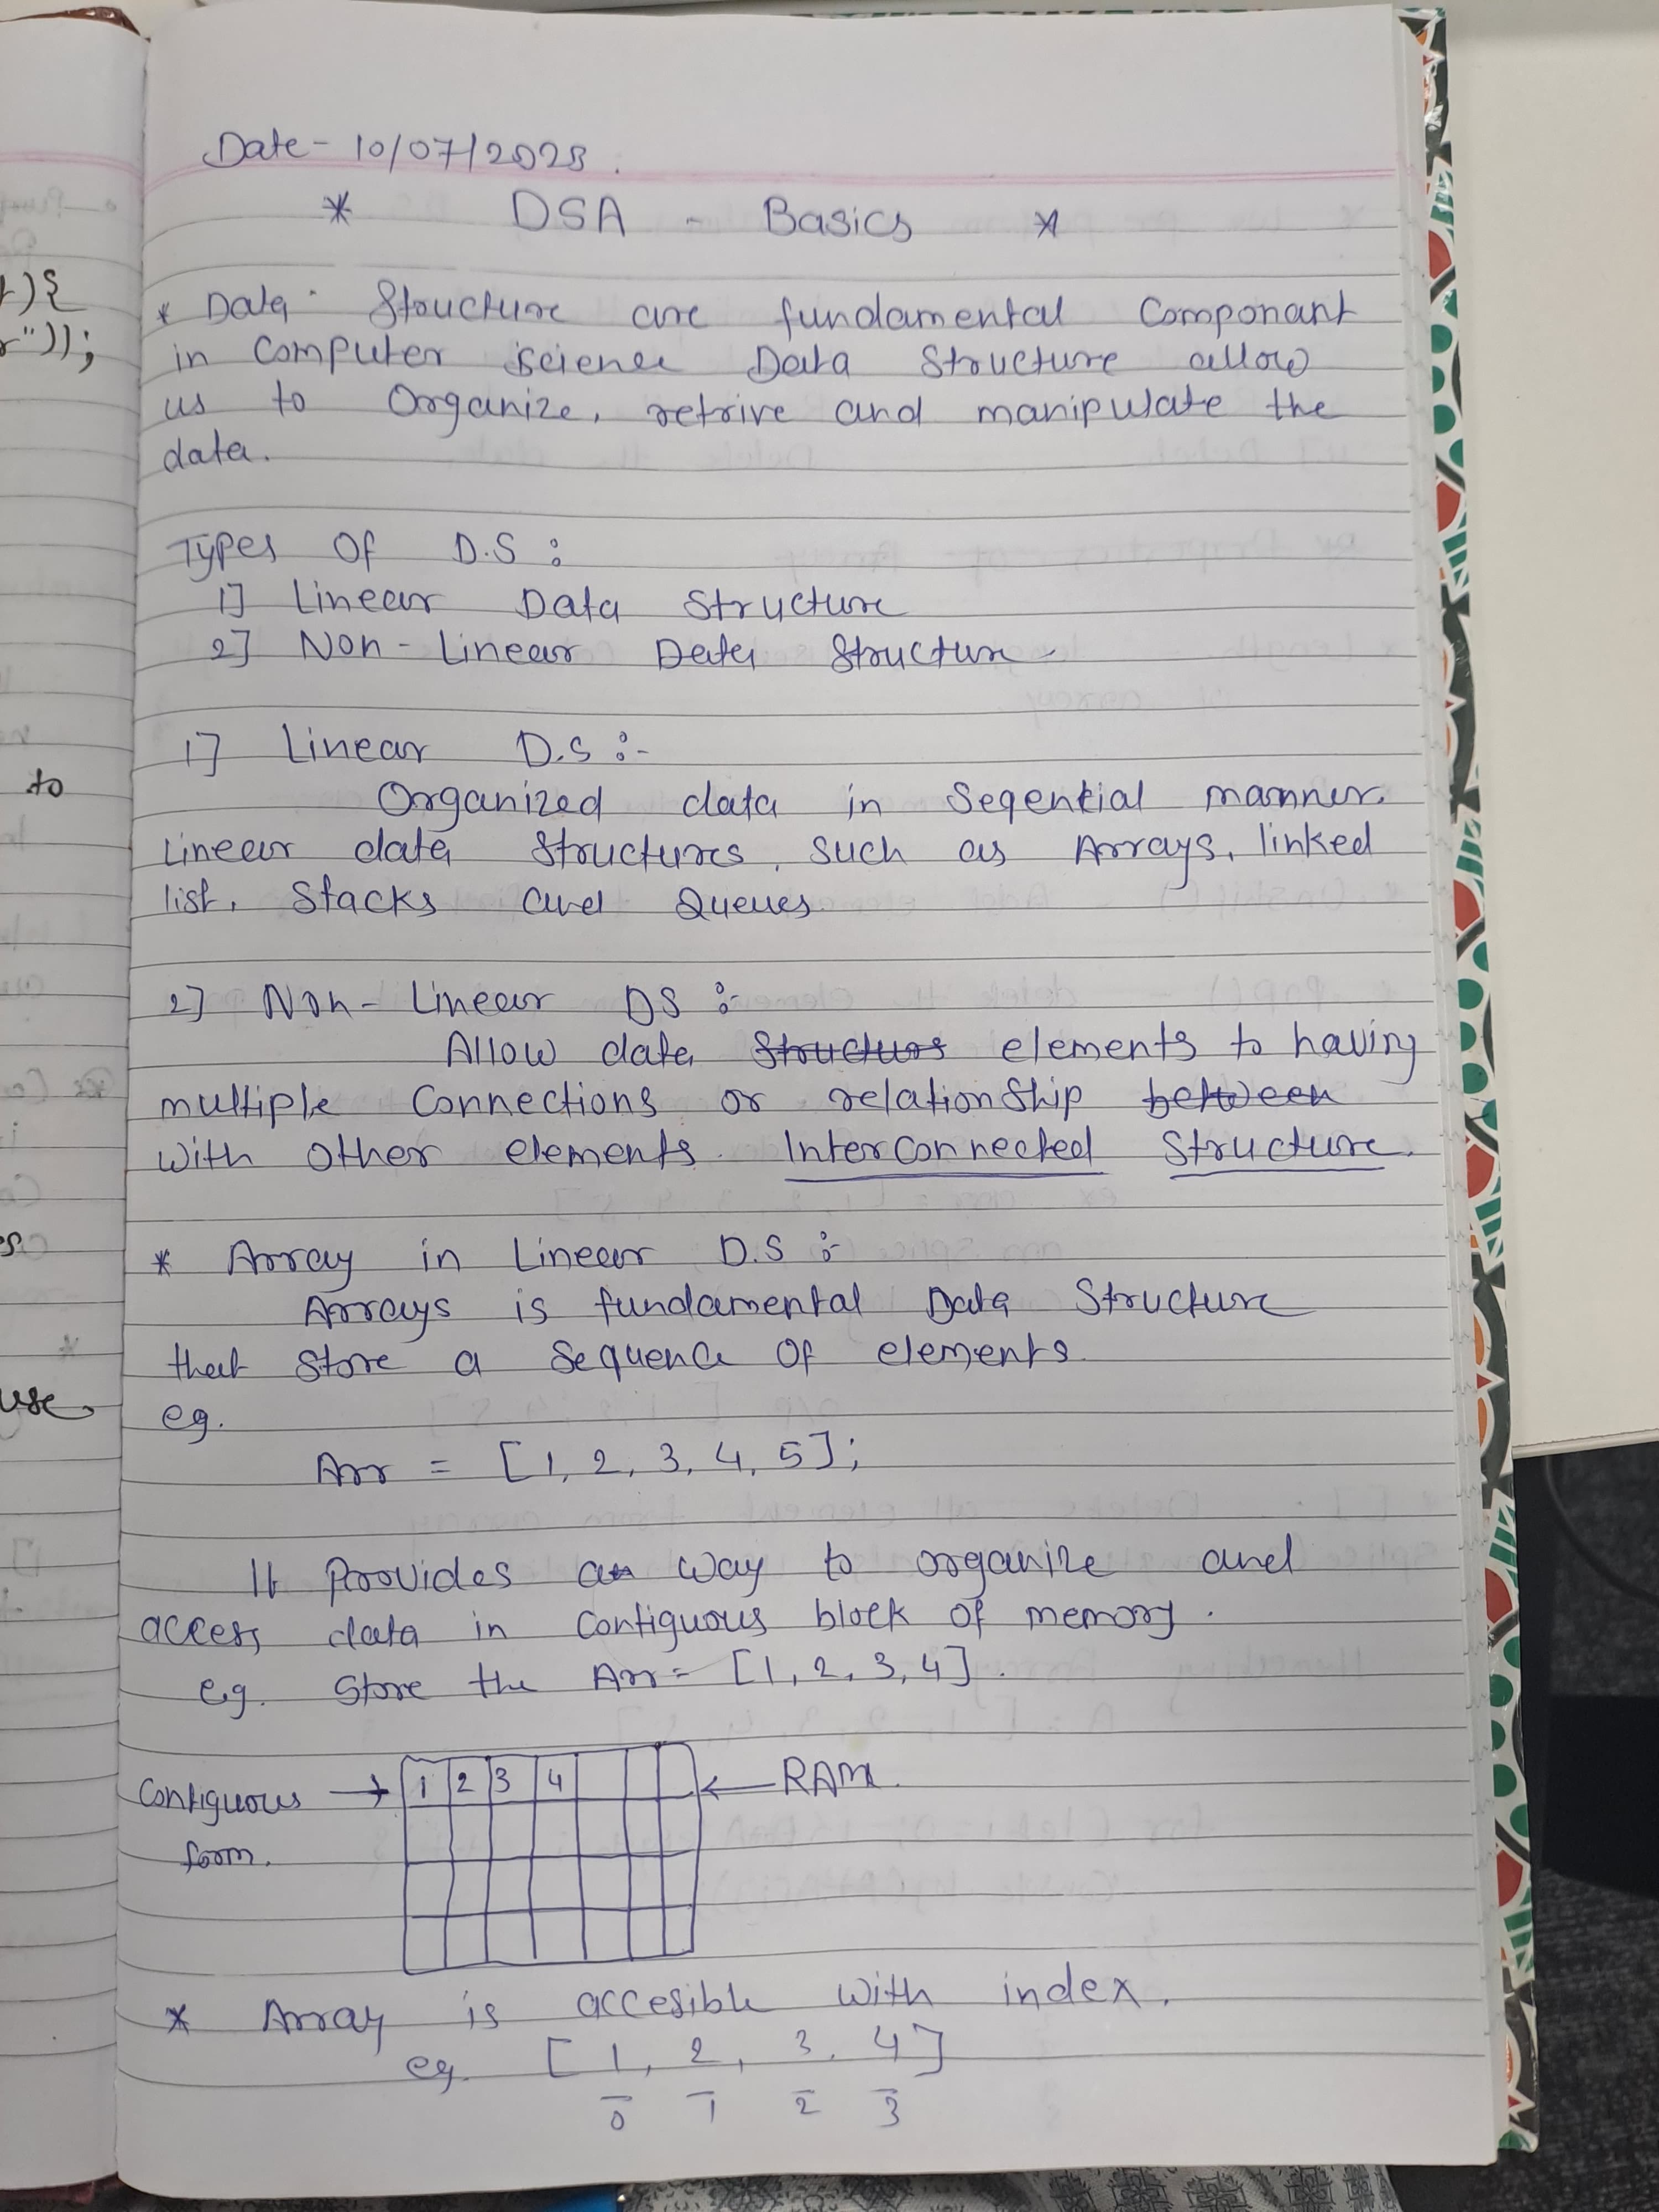 Date - 10/07/2023.
* DSA - Basics *
* Data Structure are fundamental Componant
in Computer Science Data Structure allow
us to Organize, retrive and manipulate the
data.
Types Of D.S :
1] Linear Data Structure
2] Non - Linear Data Structure
1] Linear D.S :-
Organized data in Seqential manner.
Linear data Structures, such as Arrays, linked
list, Stacks and Queues.
2] Non - Linear DS :-
Allow data Structurs elements to having
multiple Connections or relationship between
with other elements. Interconnected Structure.
* Array in Linear D.S :-
Arrays is fundamental Data Structure
that Store a Sequence Of elements.
eg.
Arr = [1, 2, 3, 4, 5];
It Provides a way to organize and
access data in Contiguous block of memory.
e.g. Store the Arr = [1, 2, 3, 4].
Contiguous → 1 2 3 4 ← RAM.
form.
* Array is accesible with index.
eg. [ 1, 2, 3, 4 ]
0 1 2 3
t) {
r"));
to
use